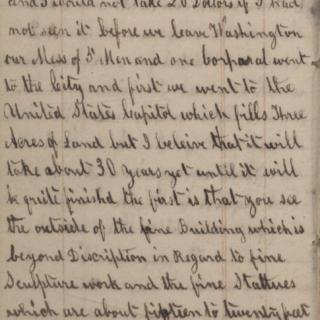 and I would not take 20 Dollors if I had
not seen it before we leave Washington
our Mess of 5 Men and one Corparal went
to the City and first we went to the
United States Capitol which fills Three
Acres of Land but I beleive that it will
take about 30 years yet until it will
be quite finished the first is that you see
the outside of the fine Building which is
beyond Discription in Regard to fine
Sculpture work and the fine Stattures
which are about fifteen to twenty feet